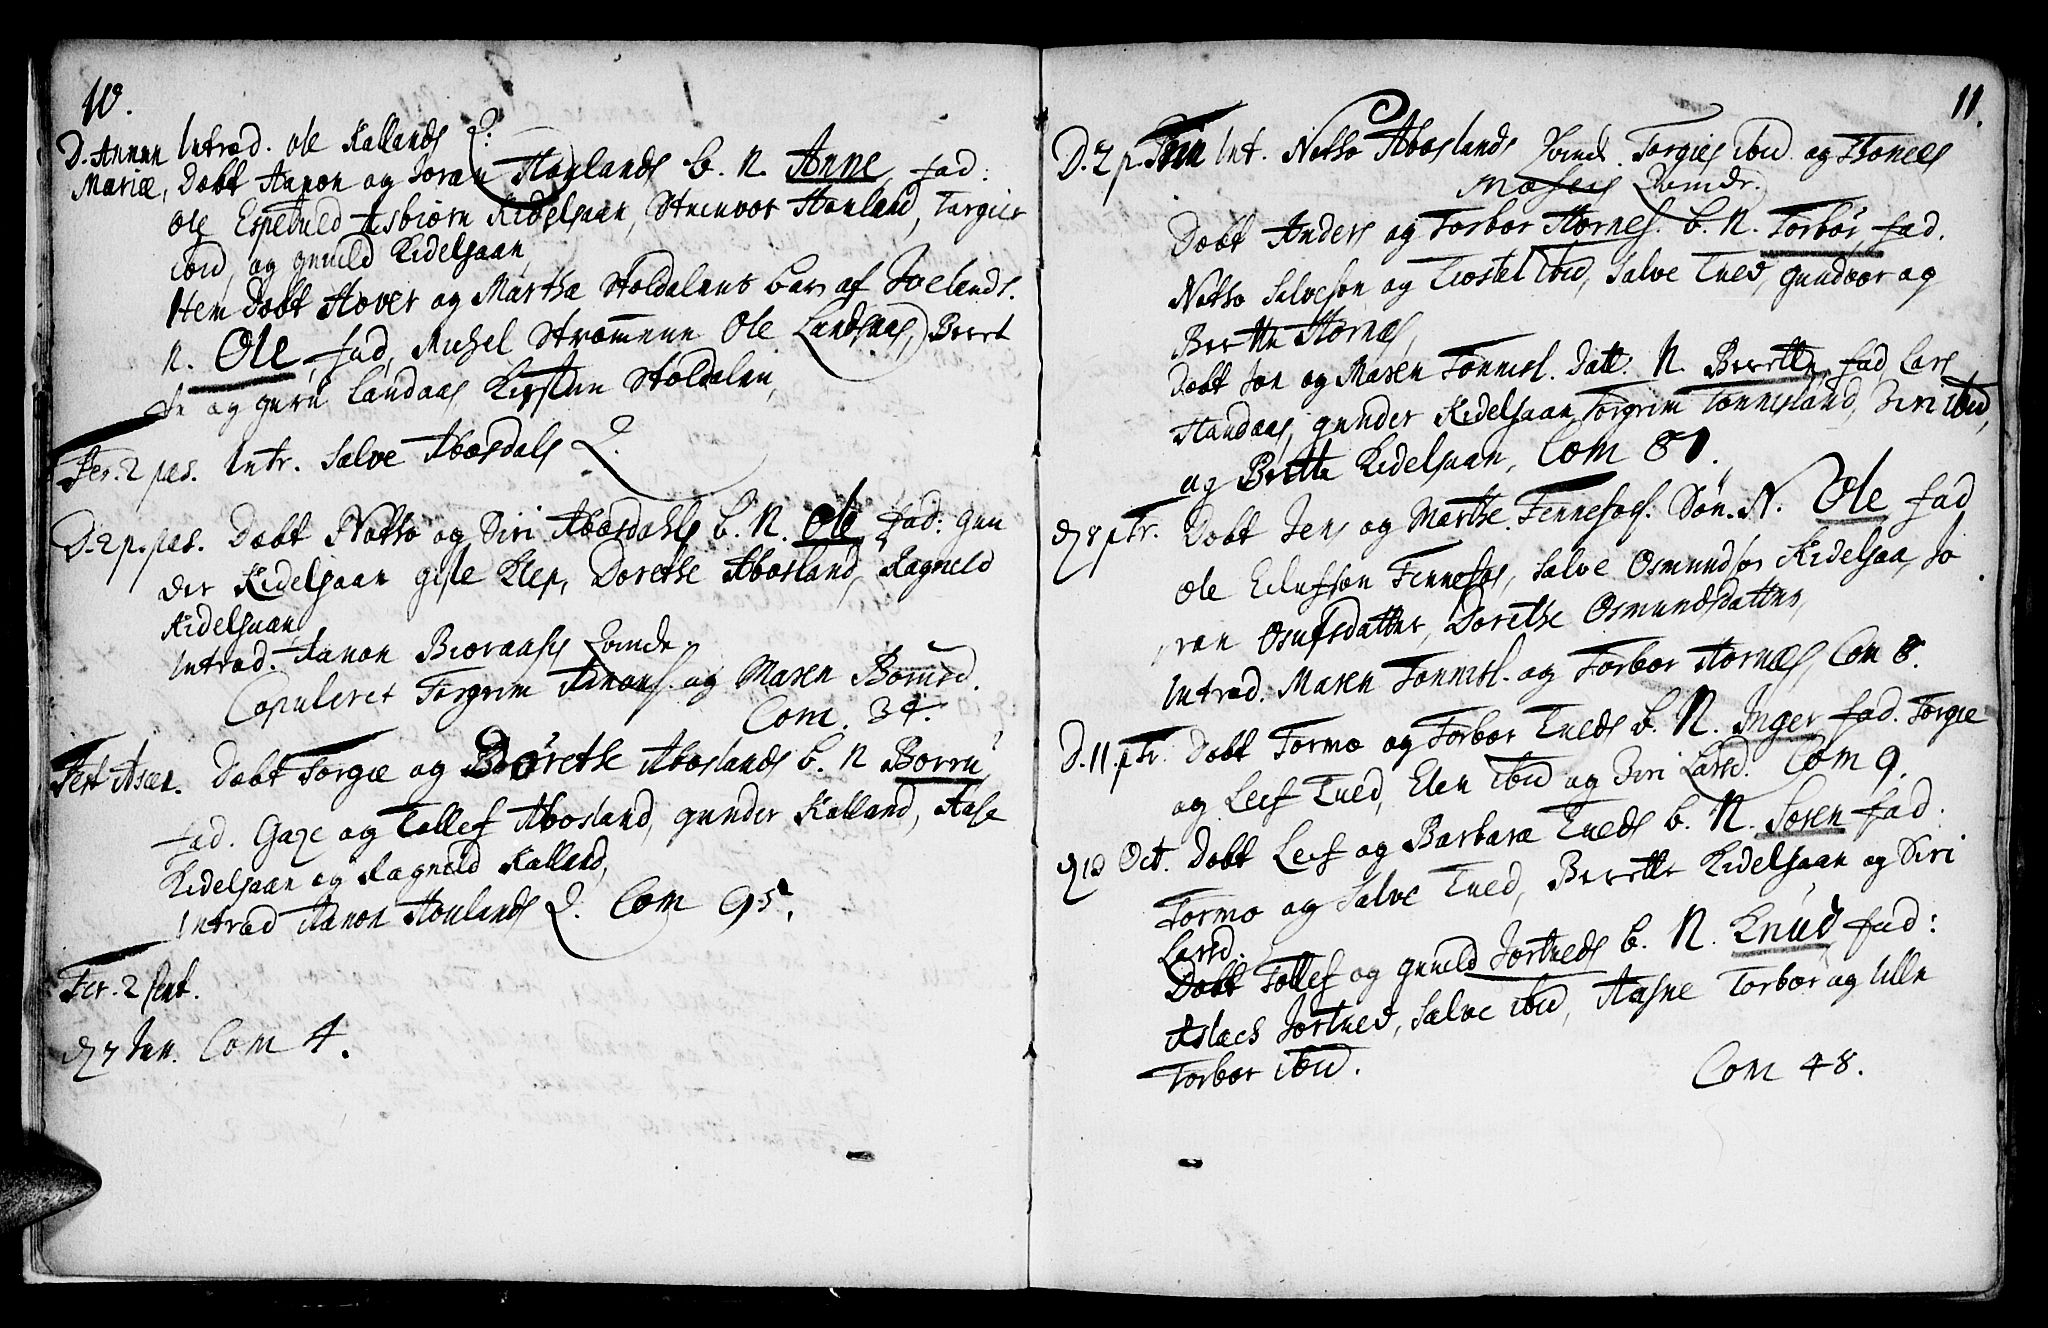 10.
D. Annun Introd. Ole Kallands Q.
Mariæ, Døbt Aanon og Joran Houlands b. N. Anne, fad:
Ole Espetved Asbiørn Kidelsaan, Steinvor Houland, Torgier
ibid, og gunild Kidelsaan,
Item Døbt Hover og Martha Stoldalens barn af Ivelands.
N. Ole, fad, Michel Strømmene Ole Landaas, Beret
te og guru Landaas Kirsten Stoldalen,
Fer. 2 pas. Intr. Salve Abosdals Q.
D. 2 p. pas. Døbt Notto og Siri Abosdahls b. N. Ole fad: Gun
der Kidelsaan gisle Klep, Dorethe Abosland, Ragnild
Kidelsaan
Introd. Aanon Bioraasis Qvinde
Copuleret Torgrim Aanons. og Maren Børufd.
Com. 34.
Fest Ascen. Døbt Torgie og Dorethe Aboslands b. N Borru
fad. Gaze og Tollef Abosland, gunder Kalland, Aase
Kidelsaan og Ragnild Kalland,
Introd Aanon Houlands Q. Com 95.
Fer. 2 Pent.
d 7 Jun. Com 4.
11.
D. 2 p. Trin Int. Notto Aboslands Qvind. Torgies ibid og Tronels
Moseis Qvindr.
Døbt Anders og Torbor Hornes. b. N. Torbor, fad.
Notto Salveson og Trostel ibid, Salve Tued, gundvor og
Berthe Hornes,
Døbt Jon og Maren Tonnisl. Datt. N. Berette, fad, Lars
Handaas, gunder Kidelsaan Torgrim Tonnisland, Siri ibid,
og Britte Kidelsaan, Com 81.
d 8 p Tr. Døbt Jens og Marthe Fennefos. Søn. N. Ole fad
Ole Eilufsøn Fennefos, Salve Osmundsøn Kidelsaa, Jo
ran Osufsdatter, Dorethe Osmundsdatter,
Introd. Maren Tonnisl. og Torbor Hornes Com 8.
D. 11. p Tr. Døbt Tormo og Torbor Tueds b. N. Inger fad. Torgie
og Leif Tued, Elen ibid og Siri Larsd. Com 9.
d 10 Oct. Døbt Leif og Barbara Tueds b. N. Søren fad.
Tormo og Salve Tued, Berette Kidelsaan og Siri
Larsd.
Døbt Tollef og gunild Jortueds b. N. Knud fad:
Aslach Jortued, Salve ibid, Aasne Torbor og Ulle
Torbor ibid.
Com 48.